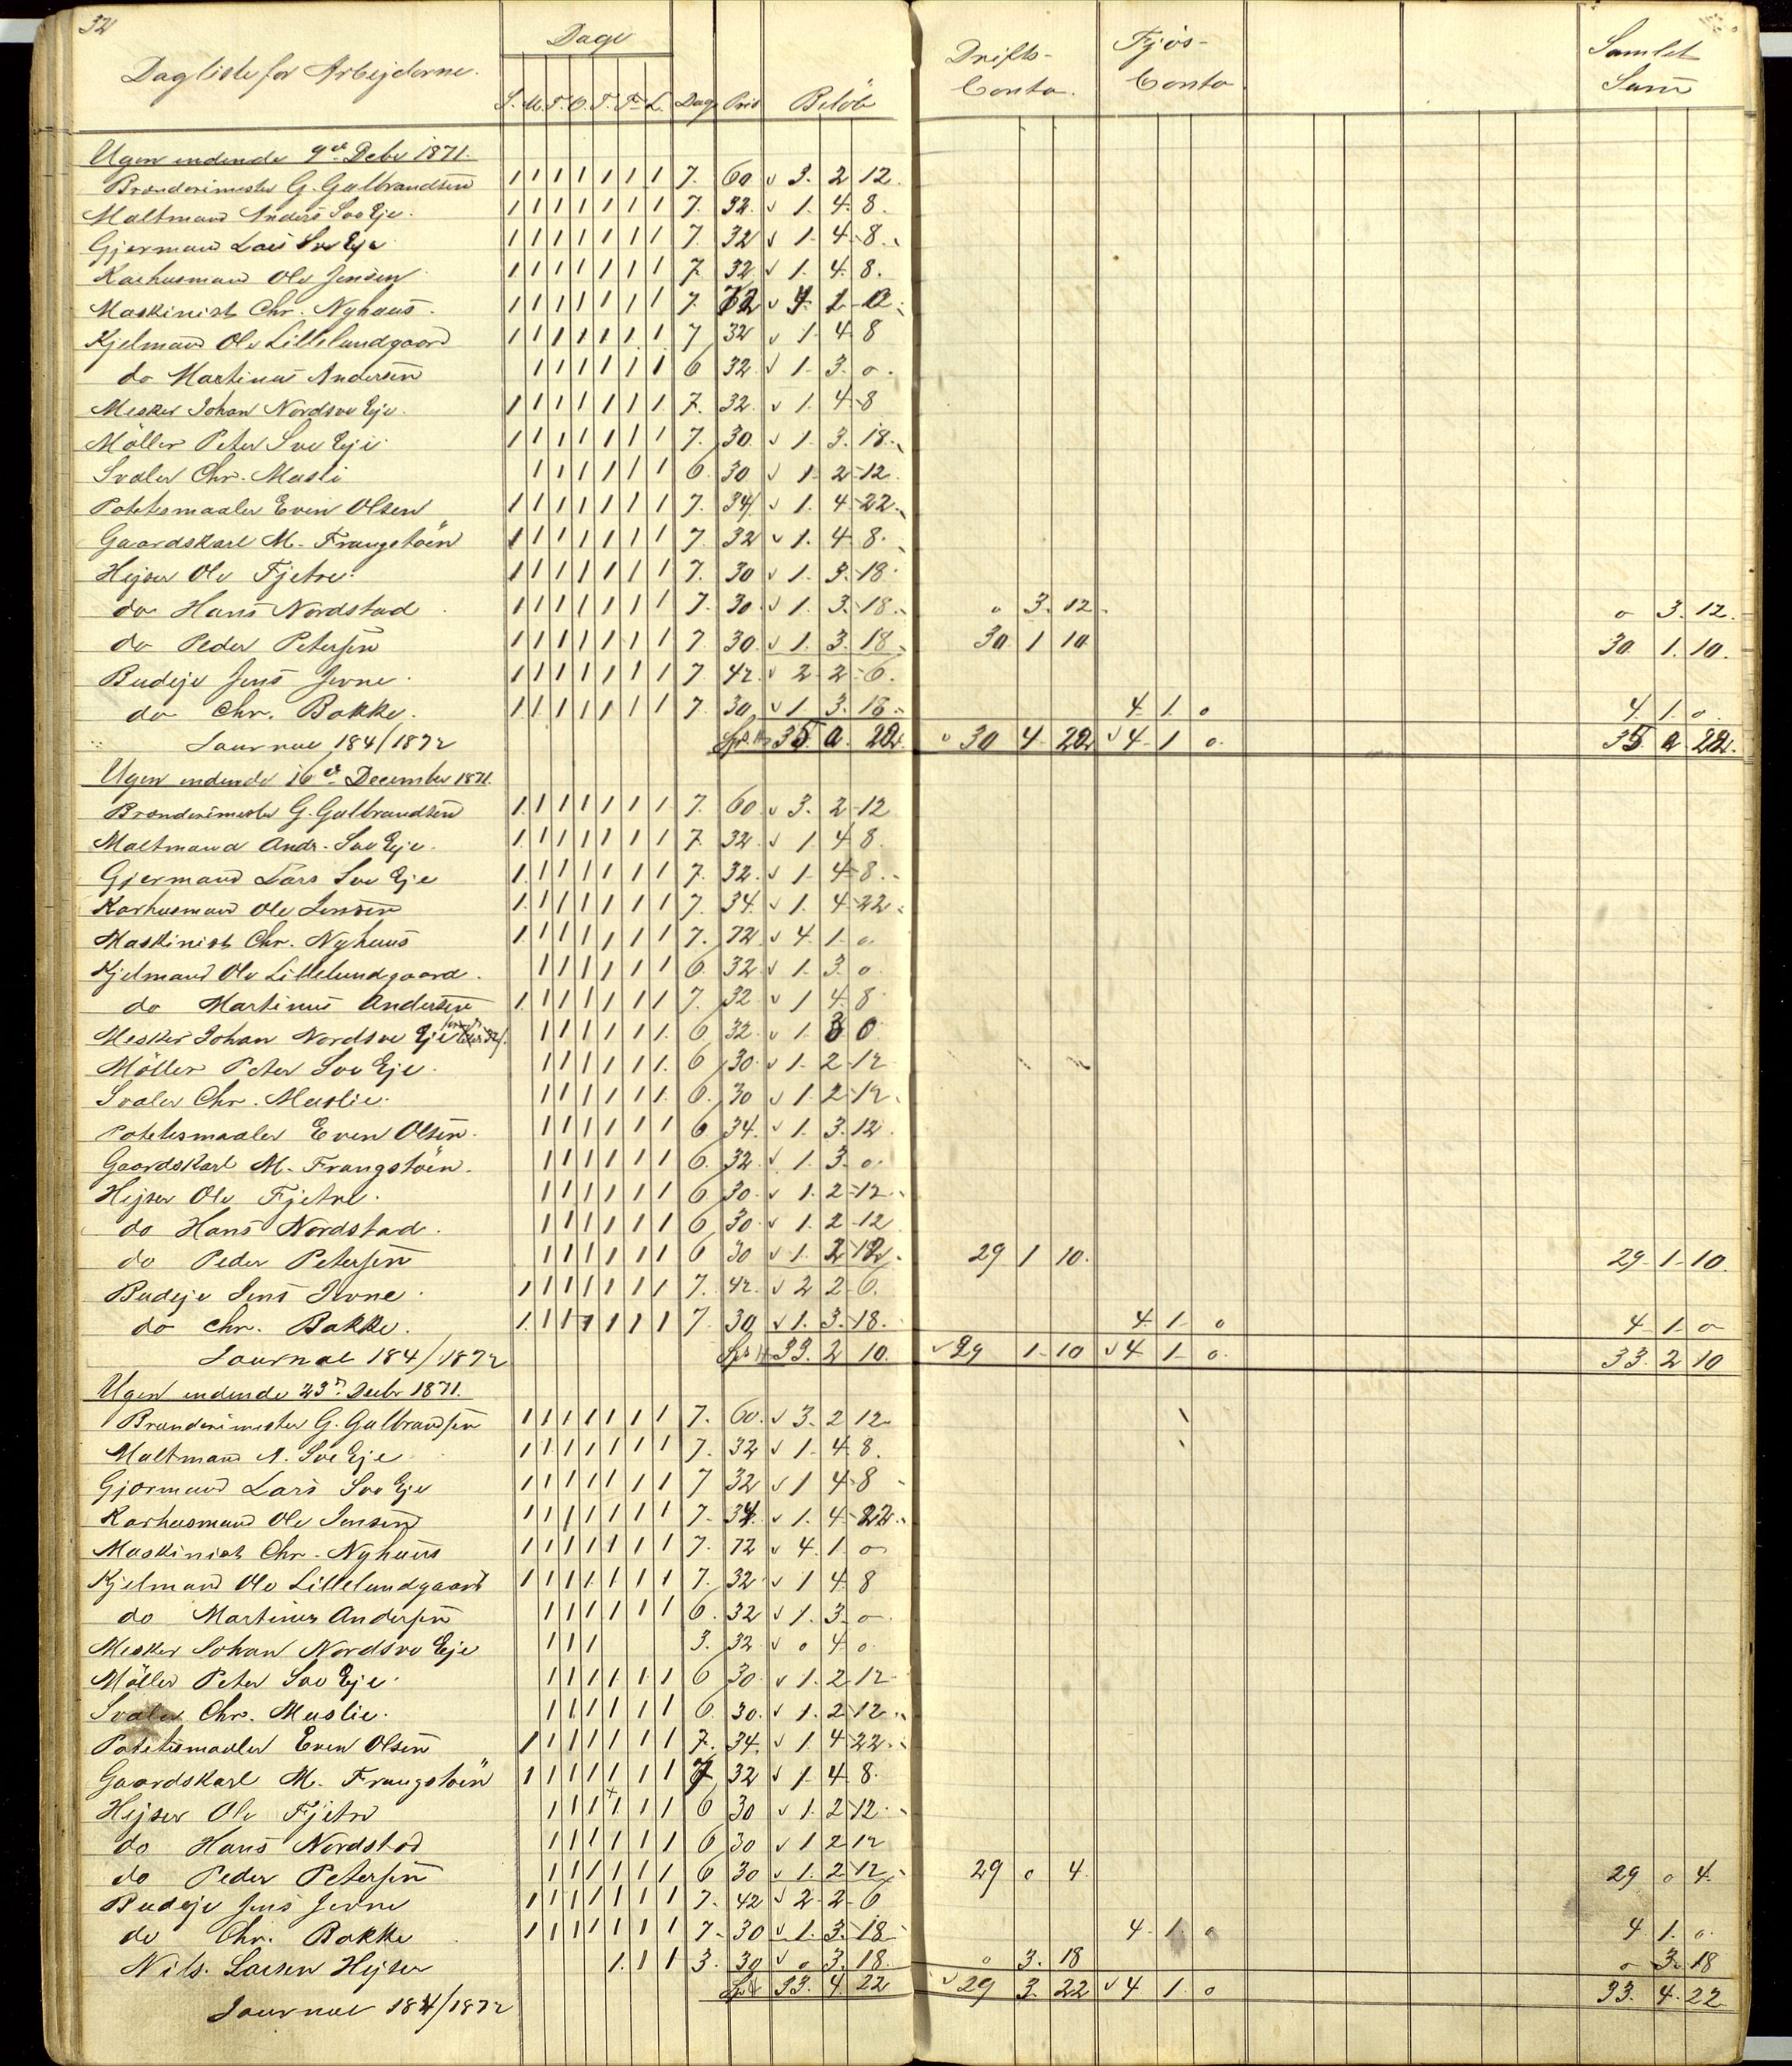 32
Dagliste for Arbejderne. Dage Drifts- Conto. Fjös- Conto Samlet Sum
S. M. T. O. T. F. L. Dage Pris Belöb
Ugen endende 9de Debr 1871.
Brænderimester G. Gulbrandsen 1 1 1 1 1 1 1 7. 60 v 3. 2 12.
Maltmand Anders Soo Eje. 1 1 1 1 1 1 1 7. 32. v 1. 4. 8.
Gjermand Lars Soo Eje 1 1 1 1 1 1 1 7. 32 v 1. 4. 8.
Karhusmand Ole Jensen 1 1 1 1 1 1 1 7. 32 v 1. 4. 8.
Maskinist Chr. Nyhuus. 1 1 1 1 1 1 1 7. 72 v 4. 1 0.
Kjelmand Ole Lillelundgaard 1 1 1 1 1 1 1 7 32 v 1. 4. 8
do Martinus Andersen 1 1 1 1 1 1 6 32. v 1. 3. 0.
Mesker Johan Nordsoo Eje. 1 1 1 1 1 1 1 7. 32. v 1. 4. 8
Möller Peter Soo Eje. 1 1 1 1 1 1 1 7. 30. v 1. 3. 18.
Svaler Chr. Musli 1 1 1 1 1 1 6. 30 v 1. 2 12.
Potetesmaaler Even Olsen 1 1 1 1 1 1 1 7. 34. v 1. 4. 22.
Gaardskarl M. Frangstöen 1 1 1 1 1 1 1 7. 32 v 1. 4. 8.
Hejser Ole Fjetre. 1 1 1 1 1 1 1 7. 30 v 1. 3. 18.
do Hans Nordstad 1 1 1 1 1 1 1 7. 30. v 1. 3. 18. 0 3. 12. 0 3. 12.
do Peder Petersen 1 1 1 1 1 1 1 7. 30. v 1. 3. 18. 30 1 10 30. 1. 10.
Budeje Jens Jevne. 1 1 1 1 1 1 1 7. 42. v 2 2 6.
do Chr. Bakke. 1 1 1 1 1 1 1 7. 30 v 1. 3. 18. 4. 1. 0 4. 1. 0.
Journal 184/1872 35 0. 22. v 30 4 22 v 4 1 0. 35 0 22.
Ugen endende 16de December 1871.
Brænderimester G. Gulbrandsen 1 1 1 1 1 1 1 7. 60 v 3. 2 12
Maltmand Andr. Soo Eje. 1 1 1 1 1 1 1 7. 32. v 1. 4. 8.
Gjermand Lars Soo Eje 1 1 1 1 1 1 1 7. 32. v 1. 4. 8.
Karhusmand Ole Jensen 1 1 1 1 1 1 1 7. 34. v 1. 4. 22
Maskinist Chr. Nyhuus 1 1 1 1 1 1 1 7. 72. v 4. 1. 0
Kjelmand Ole Lillelundgaard. 1 1 1 1 1 1 6. 32 v 1. 3. 0
do Martinus Andersen 1 1 1 1 1 1 1 7. 32 v 1 4. 8
Mesker Johan Nordsoo Eje 1 1 1 1 1 1 6 32. v 1. 3 0
Möller Peter Soo Eje. 1 1 1 1 1 1 6 30. v 1. 2 12
Svaler Chr. Muslie. 1 1 1 1 1 1 6. 30 v 1. 2 12.
Potetesmaaler Even Olsen. 1 1 1 1 1 1 6 34. v 1. 3. 12.
Gaardskarl M. Frangstöen. 1 1 1 1 1 1 6. 32. v 1. 3. 0.
Hejser Ole Fjetre. 1 1 1 1 1 1 6 30. v 1. 2 12.
do Hans Nordstad. 1 1 1 1 1 1 6 30. v 1. 2 12
do Peder Petersen 1 1 1 1 1 1 6 30 v 1. 2 12. 29 1 10. 29. 1. 10.
Budeje Jens Jevne. 1 1 1 1 1 1 1 7. 42. v 2 2. 6.
do Chr. Bakke. 1 1 1 1 1 1 1 7 30 v 1. 3. 18. 4. 1. 0 4. 1. 0
Journal 184/1872 33. 2 10. v 29 1 10 v 4 1 0. 33. 2 10
Ugen endende 23de Decbr 1871.
Brænderimester G. Gulbrandsen 1 1 1 1 1 1 1 7. 60. v 3. 2 12
Maltmand A. Soo Eje 1 1 1 1 1 1 1 7. 32 v 1. 4. 8.
Gjærmand Lars Soo Eje 1 1 1 1 1 1 1 7 32 v 1 4. 8
Karhusmand Ole Jensen 1 1 1 1 1 1 1 7. 34. v 1. 4. 22.
Maskinist Chr. Nyhuus 1 1 1 1 1 1 1 7. 72 v 4. 1. 0
Kjelmand Ole Lillelundgaard 1 1 1 1 1 1 1 7. 32. v 1 4. 8
do Martinus Andersen 1 1 1 1 1 1 6. 32 v 1. 3. 0
Mesker Johan Nordsoo Eje 1 1 1 3. 32. v 0 4. 0
Möller Peter Soo Eje. 1 1 1 1 1 1 6 30. v 1. 2 12
Svaler Chr. Muslie. 1 1 1 1 1 1 6. 30. v 1. 2 12.
Potetesmaaler Even Olsen 1 1 1 1 1 1 1 7. 34. v 1. 4 22.
Gaardskarl M. Frangstöen 1 1 1 1 1 1 1 7 32 v 1. 4. 8.
Hejser Ole Fjetre 1 1 1 1 1 1 6 30 v 1. 2 12.
do Hans Nordstad 1 1 1 1 1 1 6 30 v 1 2 12
do Peder Petersen 1 1 1 1 1 1 6 30 v 1. 2 12. 29 0 4. 29 0 4.
Budeje Jens Jevne 1 1 1 1 1 1 1 7. 42 v 2. 2. 6
do Chr. Bakke 1 1 1 1 1 1 1 7. 30 v 1. 3. 18 4. 1. 0 4. 1. 0.
Nils Larsen Hejser 1 1 1 3. 30 v 0 3. 18. 0 3. 18 0 3. 18
Journal 184/1872 33. 4. 22 v 29 3. 22 v 4 1. 0 33. 4. 22